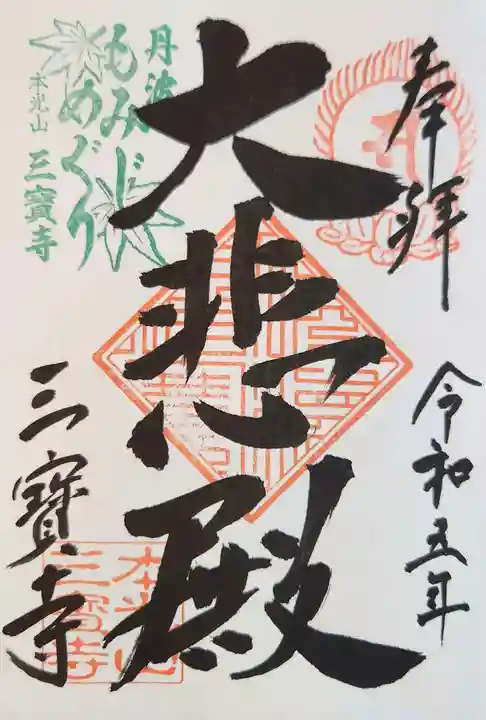 奉拝
令和五年
大悲殿
丹波
もみじめぐり
本光山 三寶寺
三寶寺
本光山
三寶寺